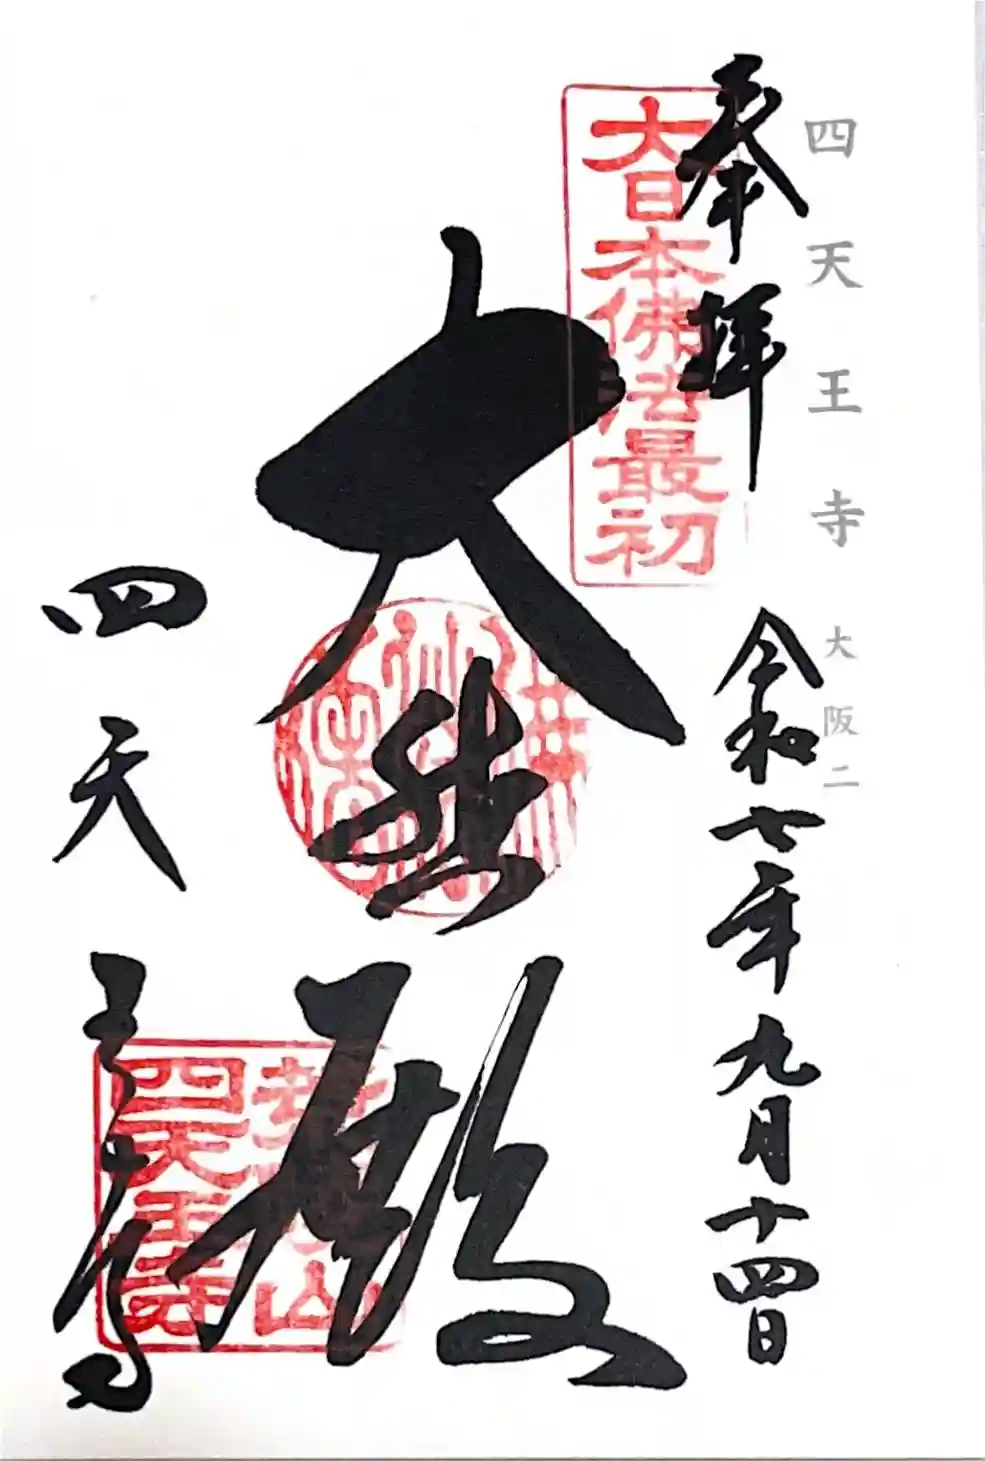 四天王寺 大阪二
奉拝
令和七年九月十四日
大日本佛法最初
大黒殿
四天王寺
四天王寺
山